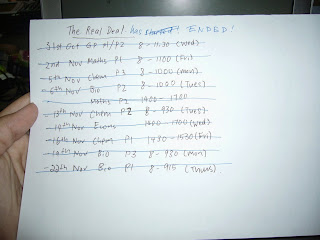 The Real Deal has started! ENDED!
31st Oct GP P1/P2 8 - 11.30 (Wed)
2nd Nov Maths P1 8 - 1100 (Fri)
5th Nov Chem P3 8 - 1000 (Mon)
6th Nov Bio P2 8 - 1000 (Tues)
Maths P2 1400 - 1700
13th Nov Chem P2 8 - 930 (Tues)
14th Nov Econs 1400 - 1700 (Wed)
16th Nov Chem P1 1430 - 1530 (Fri)
19th Nov Bio P3 8 - 930 (Mon)
22th Nov Bio P1 8 - 915 (Thurs)